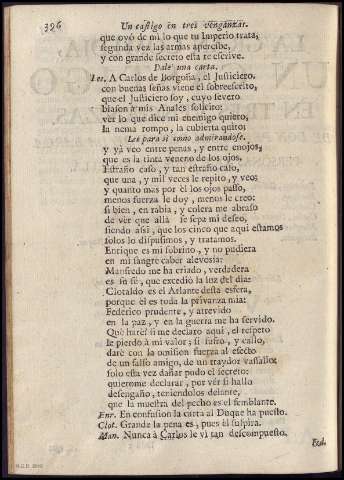 396
Un castigo en tres venganzas.
que oyó de mi lo que tu Imperio trata,
segunda vez las armas apercibe,
y con grande secreto esta te escrive.
Dale una carta.
Lee. A Carlos de Borgoña, el Justiciero.
con buenas señas viene el sobreescrito,
que el Justiciero soy, cuyo severo
blason à mis Anales solicito:
ver lo que dice mi enemigo quiero,
la nema rompo, la cubierta quito:
Lee para sì como admirandose.
y yà veo entre penas, y entre enojos,
que es la tinta veneno de los ojos.
Estraño caso, y tan estraño caso,
que una, y mil veces le repito, y veo;
y quanto mas por èl los ojos passo,
menos fuerza le doy, menos le creo:
si bien, en rabia, y colera me abraso
de vèr que allà se sepa mi deseo,
siendo assi, que los cinco que aqui estamos
solos lo dispusimos, y tratamos.
Enrique es mi sobrino, y no pudiera
en mi sangre caber alevosia:
Manfredo me ha criado, verdadera
es su fè, que excediò la luz del dia:
Clotaldo es el Atlante desta esfera,
porque èl es toda la privanza mia:
Federico prudente, y atrevido
en la paz, y en la guerra me ha servido.
Què harè? si me declaro aqui, el respeto
le pierdo à mi valor; si sufro, y callo,
darè con la omision fuerza al efecto
de un falso amigo, de un traydor vassallo:
solo esta vez dañar pudo el secreto:
quierome declarar, por vèr si hallo
desengaño, teniendolos delante,
que la muestra del pecho es el semblante.
Enr. En confusion la carta al Duque ha puesto.
Clot. Grande la pena es, pues èl suspira.
Man. Nunca à Carlos le vì tan descompuesto.